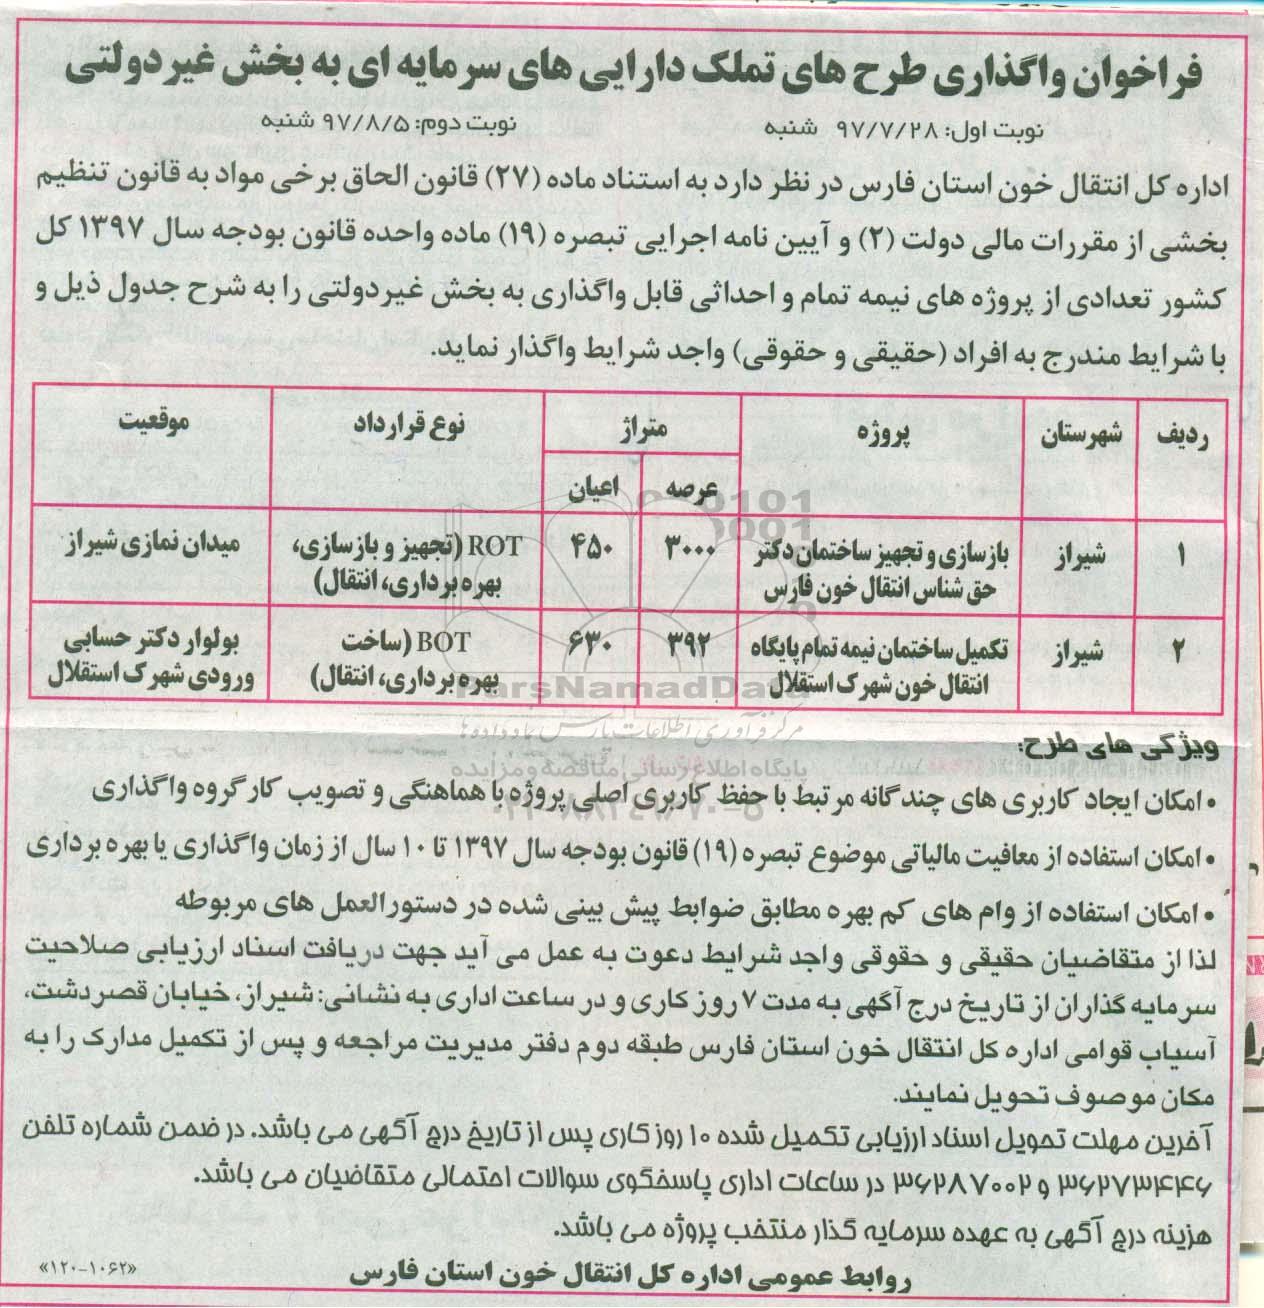 فراخوان واگذاری طرح های تملک دارایی های سرمایه ای به بخش غیردولتی
نوبت اول: ۹۷/۷/۲۸ شنبه
نوبت دوم: ۹۷/۸/۵ شنبه
اداره کل انتقال خون استان فارس در نظر دارد به استناد ماده (۲۷) قانون الحاق برخی مواد به قانون تنظیم
بخشی از مقررات مالی دولت (۲) و آیین نامه اجرایی تبصره (۱۹) ماده واحده قانون بودجه سال ۱۳۹۷ کل
کشور تعدادی از پروژه های نیمه تمام و احداثی قابل واگذاری به بخش غیردولتی را به شرح جدول ذیل و
با شرایط مندرج به افراد (حقیقی و حقوقی) واجد شرایط واگذار نماید.
ردیف شهرستان پروژه متراژ نوع قرارداد موقعیت
عرصه اعیان
۱ شیراز بازسازی و تجهیز ساختمان دکتر ۳۰۰۰ ۴۵۰ ROT (تجهیز و بازسازی، میدان نمازی شیراز
حق شناس انتقال خون فارس بهره برداری، انتقال)
۲ شیراز تکمیل ساختمان نیمه تمام پایگاه ۳۹۲ ۶۳۰ BOT (ساخت بولوار دکتر حسابی
انتقال خون شهرک استقلال بهره برداری، انتقال) ورودی شهرک استقلال
ParsNamadData
مرکز فرآوری اطلاعات پارس نماد داده ها
ویژگی های طرح:
پایگاه اطلاع رسانی مناقصه و مزایده
• امکان ایجاد کاربری های چندگانه مرتبط با حفظ کاربری اصلی پروژه با هماهنگی و تصویب کارگروه واگذاری
• امکان استفاده از معافیت مالیاتی موضوع تبصره (۱۹) قانون بودجه سال ۱۳۹۷ تا ۱۰ سال از زمان واگذاری یا بهره برداری
• امکان استفاده از وام های کم بهره مطابق ضوابط پیش بینی شده در دستورالعمل های مربوطه
لذا از متقاضیان حقیقی و حقوقی واجد شرایط دعوت به عمل می آید جهت دریافت اسناد ارزیابی صلاحیت
سرمایه گذاران از تاریخ درج آگهی به مدت ۷ روز کاری و در ساعت اداری به نشانی: شیراز، خیابان قصردشت،
آسیاب قوامی اداره کل انتقال خون استان فارس طبقه دوم دفتر مدیریت مراجعه و پس از تکمیل مدارک را به
مکان موصوف تحویل نمایند.
آخرین مهلت تحویل اسناد ارزیابی تکمیل شده ۱۰ روز کاری پس از تاریخ درج آگهی می باشد. در ضمن شماره تلفن
۳۶۲۷۳۴۴۶ و ۳۶۲۸۷۰۰۲ در ساعات اداری پاسخگوی سوالات احتمالی متقاضیان می باشد.
هزینه درج آگهی به عهده سرمایه گذار منتخب پروژه می باشد.
روابط عمومی اداره کل انتقال خون استان فارس
«۱۲۰-۱۰۶۲»